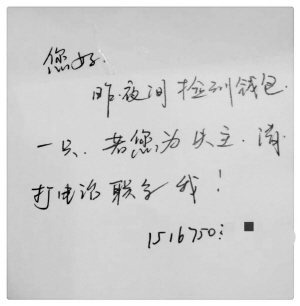 您好.
昨夜间捡到钱包
一只、若您为失主、请
打电话联系我!
1516750